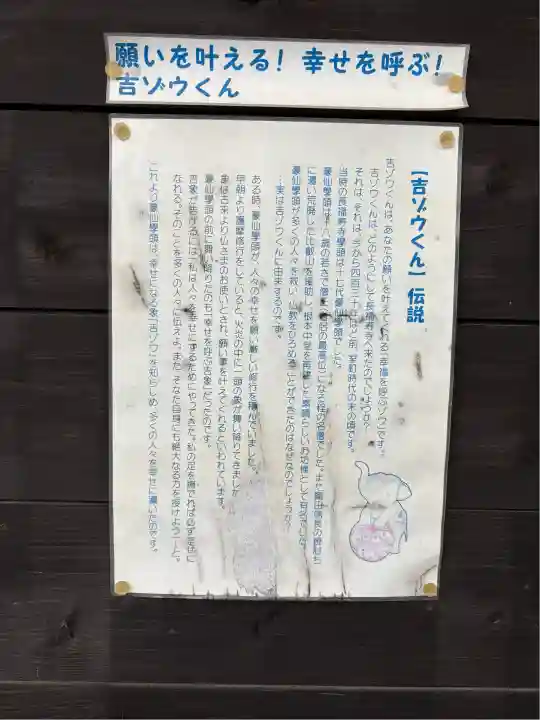 願いを叶える！幸せを呼ぶ！
吉ゾウくん
【吉ゾウくん】伝説
吉ゾウくんは、あなたの願いを叶えてくれる「幸福を呼ぶゾウ」です。
吉ゾウくんは、どのようにして長福寿寺へ来たのでしょうか？
それは、それは、今から四百三十年ほど前、室町時代の末の頃です。
当時の長福寿寺學頭は十七代豪仙學頭でした。
豪仙學頭は、十八歳の若さで僧正（僧侶の最高位）になる程の名僧でした。また織田信長の焼討ち
に遭い荒廃した比叡山を援助し、根本中堂を再建した素晴らしいお坊様として有名でした。
豪仙學頭が多くの人々を救い、仏教をひろめることができたのはなぜなのでしょうか？
…実は吉ゾウくんに由来するのです。
ある時、豪仙學頭が、人々の幸せを願い厳しい修行を積んでいました。
早朝より護摩修行をしていると、火炎の中に一頭の象が舞い降りてきました
象は古来より仏さまのお使いとされ、願い事を叶えてくれるといわれています。
豪仙學頭の前に舞い降りたのも「幸せを呼ぶ吉象」だったのです。
吉象が告げるには「私は人々を幸せにするためにやってきた。私の足を撫でれば必ず幸せに
なれる。そのことを多くの人々に伝えよ。また、そなた自身にも絶大なる力を授けよう―」と。
これより豪仙學頭は、幸せになる象「吉ゾウ」を知らしめ、多くの人々を幸せに導いたのです。